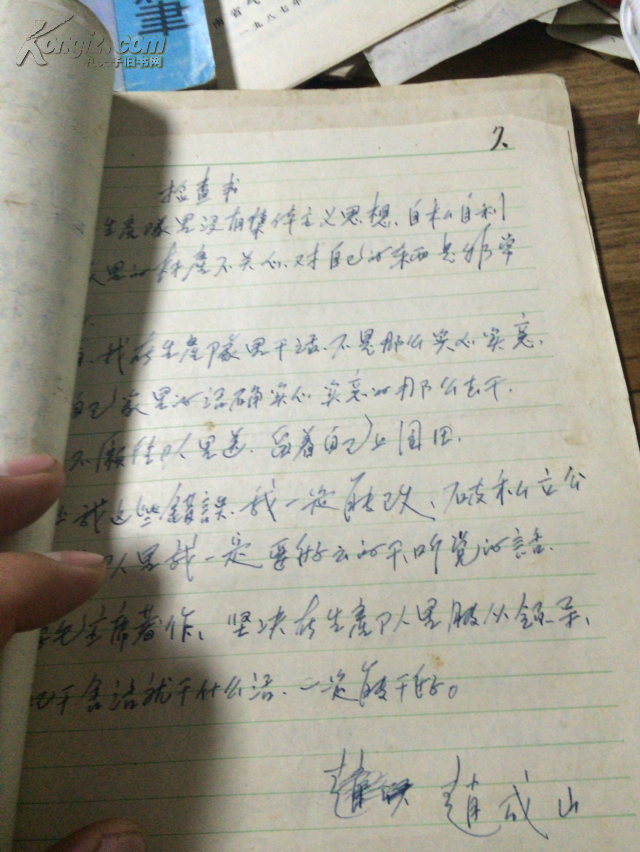 Kongfz.com
孔夫子旧书网
筆
一九八七年
久
检查书
生産隊里没有集体主义思想、自私自利
里的 不关心、对自己的东西 非常
我在生産隊里干活、不是那么实心实意、
自己家里的活确实心实意的那么去干、
不 往队里送、留着自己上园田
这些錯誤、我一定能改、破私立公
队里我一定要好好的干、听党的話
毛主席著作、坚决在生産队里服从領导、
干啥活就干什么活、一定能干好。
趙 趙成山